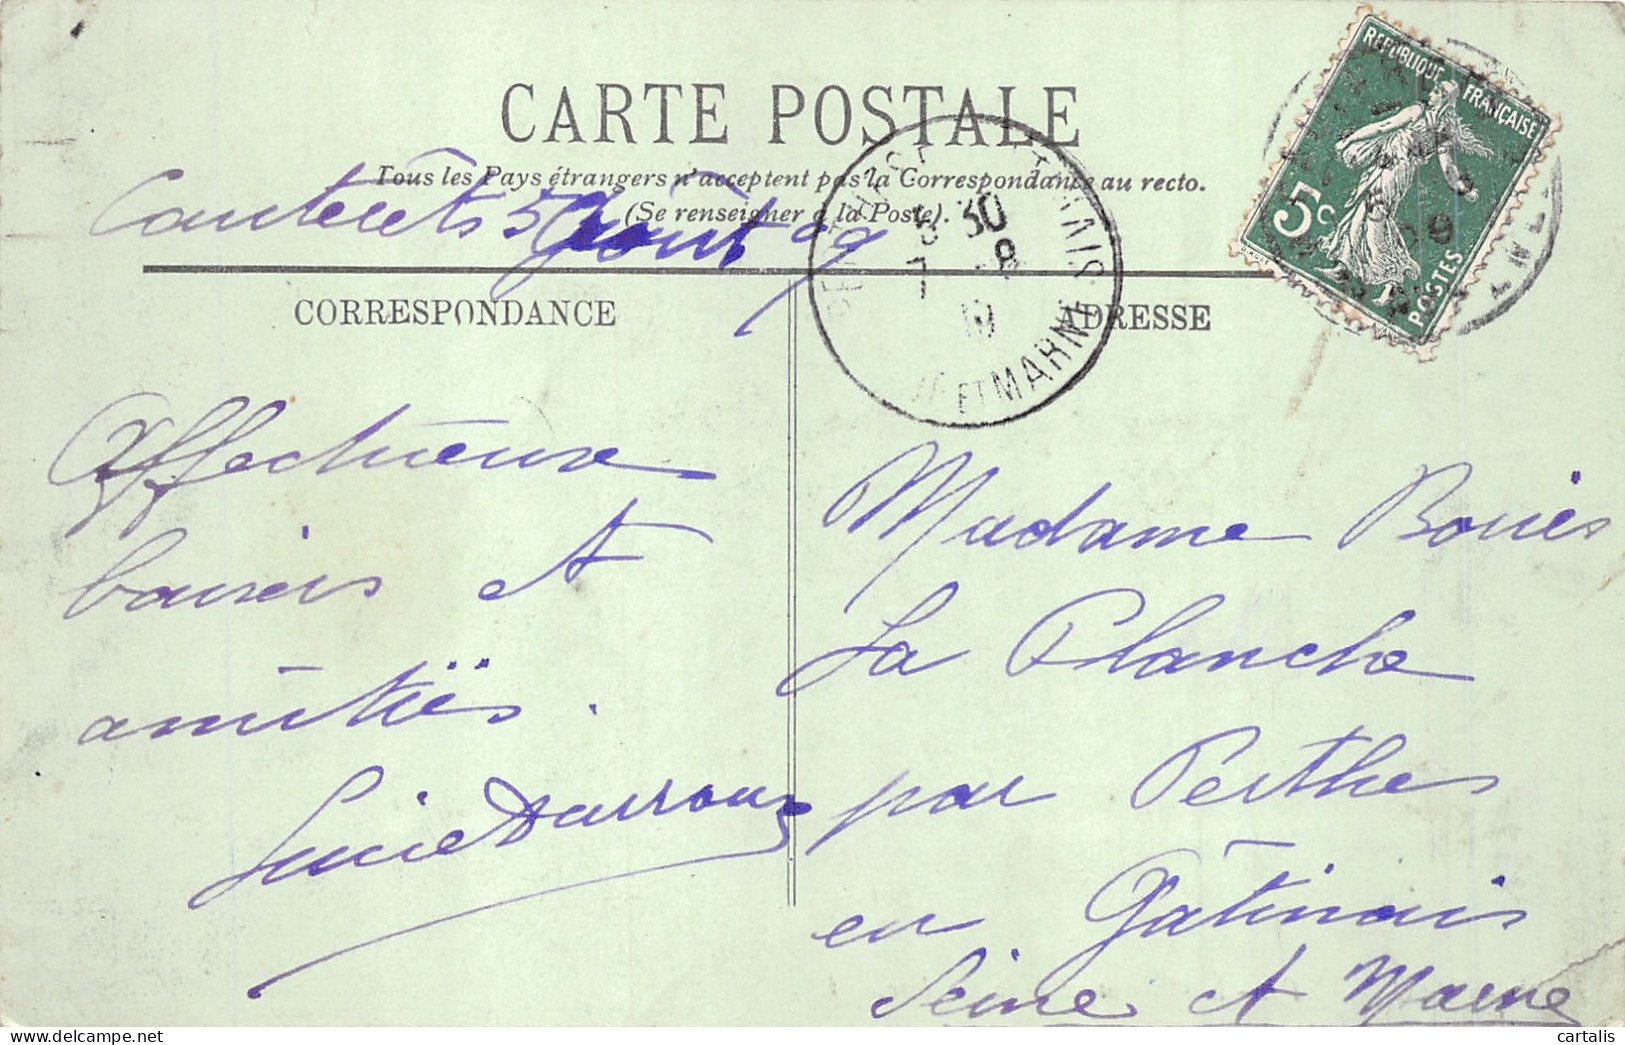 CARTE POSTALE
Tous les Pays étrangers n'acceptent pas la Correspondance au recto.
(Se renseigner à la Poste).
Cauterêts 5 Août 09
CORRESPONDANCE
Affectueux
baisers et
amitiës.
Lucie Darroux
ADRESSE
Madame Bouies
La Planche
par Perthes
en Gâtinais
Seine et Marne
REPUBLIQUE FRANÇAISE
5c
POSTES
5 30
7 - 8
ET MARNE
cartalis